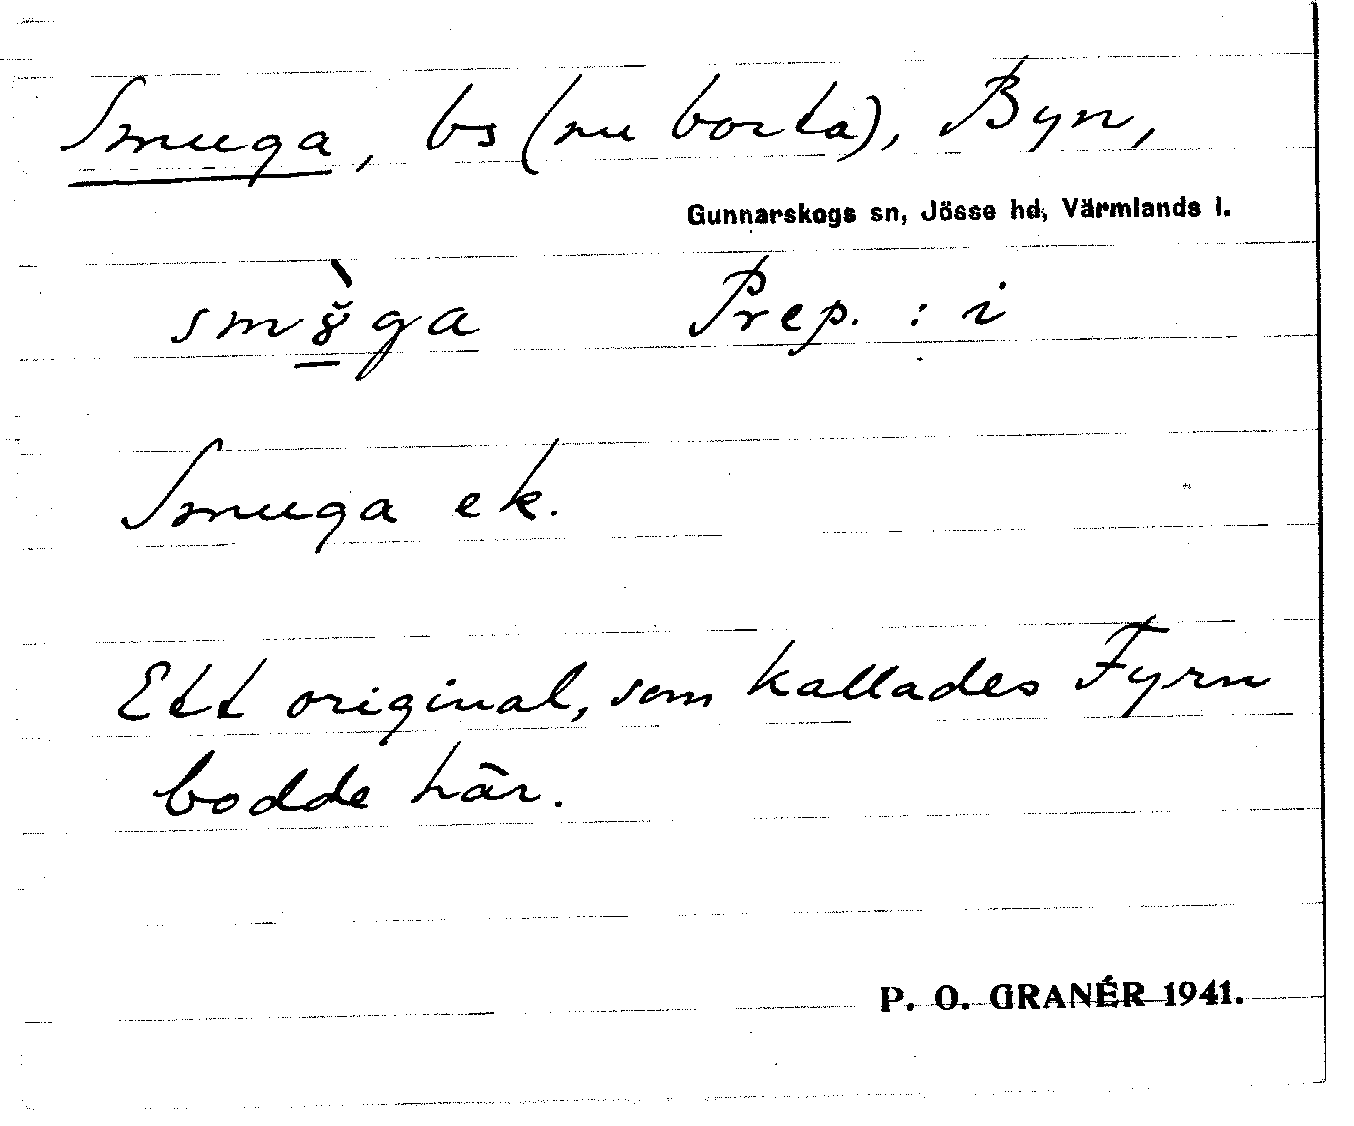 Smuga, bs (nu borta), Byn,
Gunnarskogs sn, Jösse hd, Värmlands l.
smȣ̀ga Prep. : i
Smuga ek.
Ett original, som kallades Fyrn
bodde här.
P. O. GRANÉR 1941.